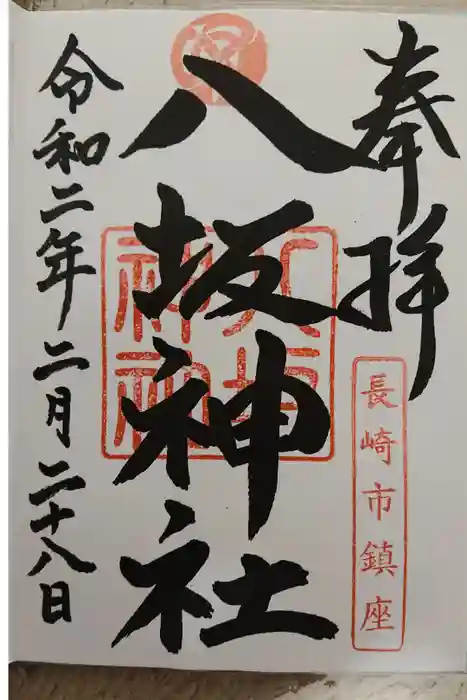 奉拝
長崎市鎮座
八坂神社
令和二年二月二十八日